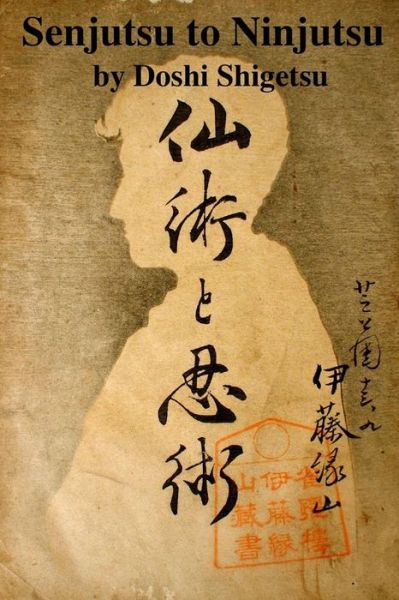 Senjutsu to Ninjutsu
by Doshi Shigetsu
仙術と忍術
芝公園
伊藤縁山
伊藤縁
山藏書